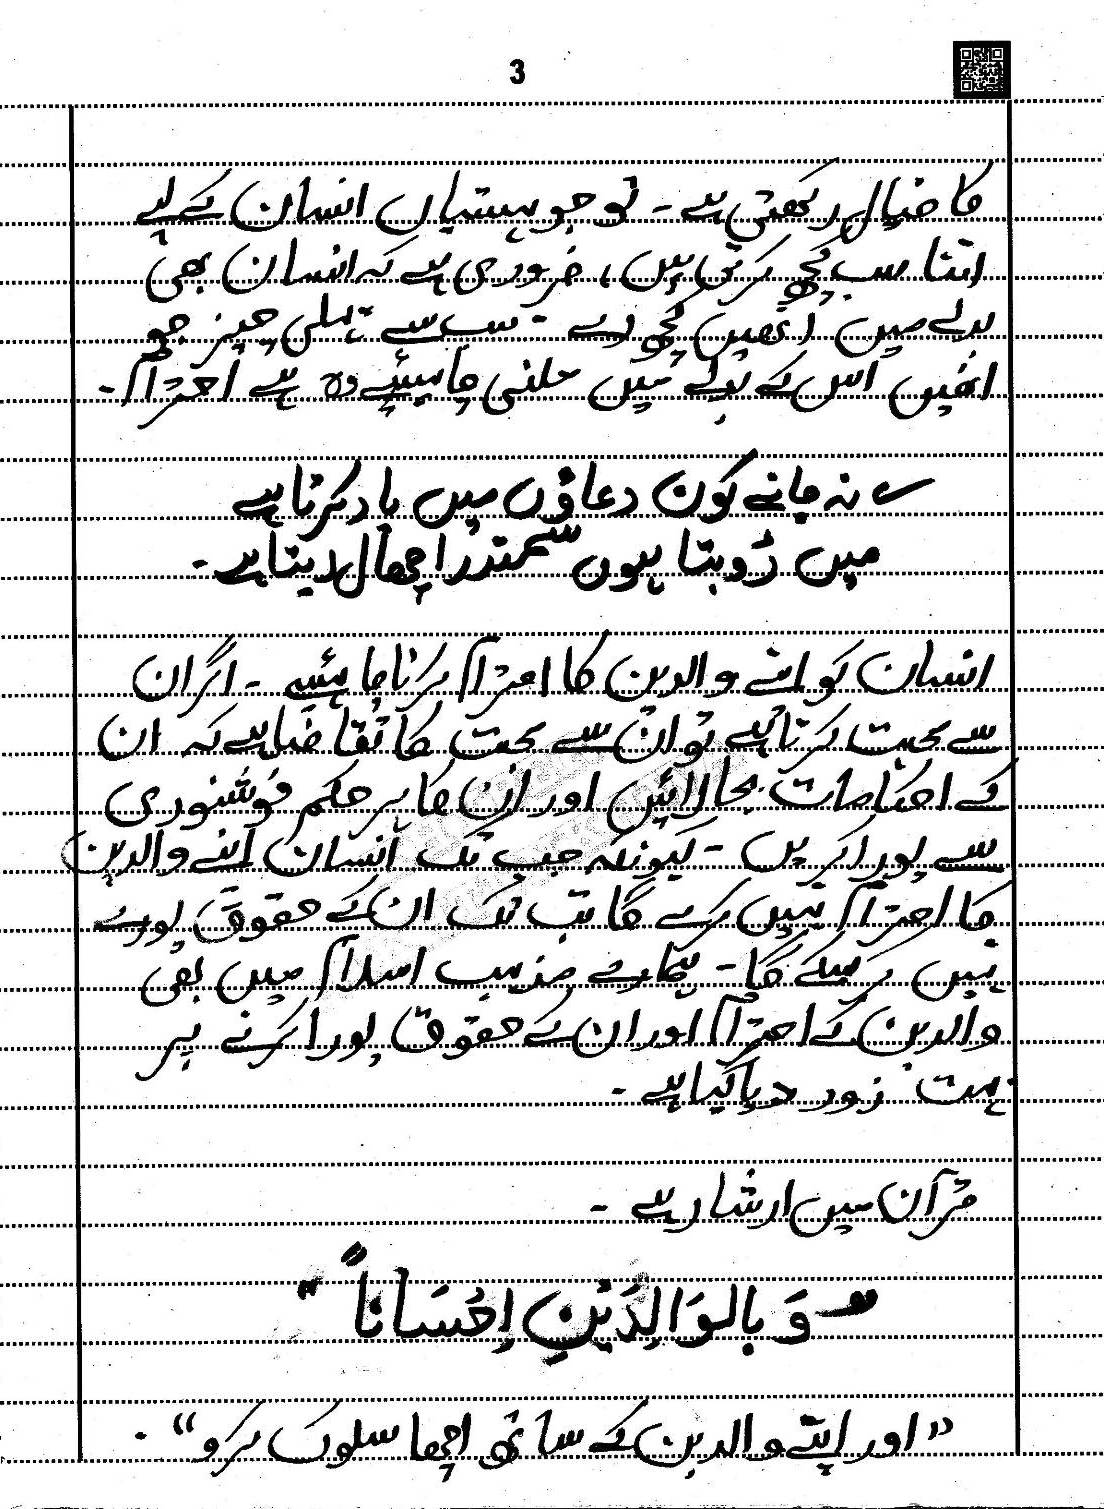 3
کا خیال رکھتی ہے ۔ تو جو ہستیاں انسان کے لیے
اتنا سب کچھ کرتی ہیں، ضروری ہے کہ انسان بھی
بدلے میں انھیں کچھ دے ۔ سب سے پہلی چیز جو
انھیں اس کے بدلے میں ملنی چاہیئے وہ ہے احترام ۔
؎ نہ جانے کون دعاؤں میں یاد کرتا ہے
میں ڈوبتا ہوں سمندر اچھال دیتا ہے ۔
انسان کو اپنے والدین کا احترام کرنا چاہئیے ۔ اگر ان
سے محبت کرتا ہے تو ان سے محبت کا تقاضا ہے کہ ان
کے احکامات بجا لائیں اور ان کا ہر حکم خوشنودی
سے پورا کریں ۔ کیونکہ جب تک انسان اپنے والدین
کا احترام نہیں کرے گا تب تک ان کے حقوق پورے
نہیں کر سکے گا ۔ ہمارے مذہب اسلام میں بھی
والدین کے احترام اور ان کے حقوق پورا کرنے پر
بہت زور دیا گیا ہے ۔
قرآن میں ارشاد ہے ۔
"وَ بِالوَالِدَيْنِ اِحْسَاناً"
"اور اپنے والدین کے ساتھ اچھا سلوک کرو" ۔